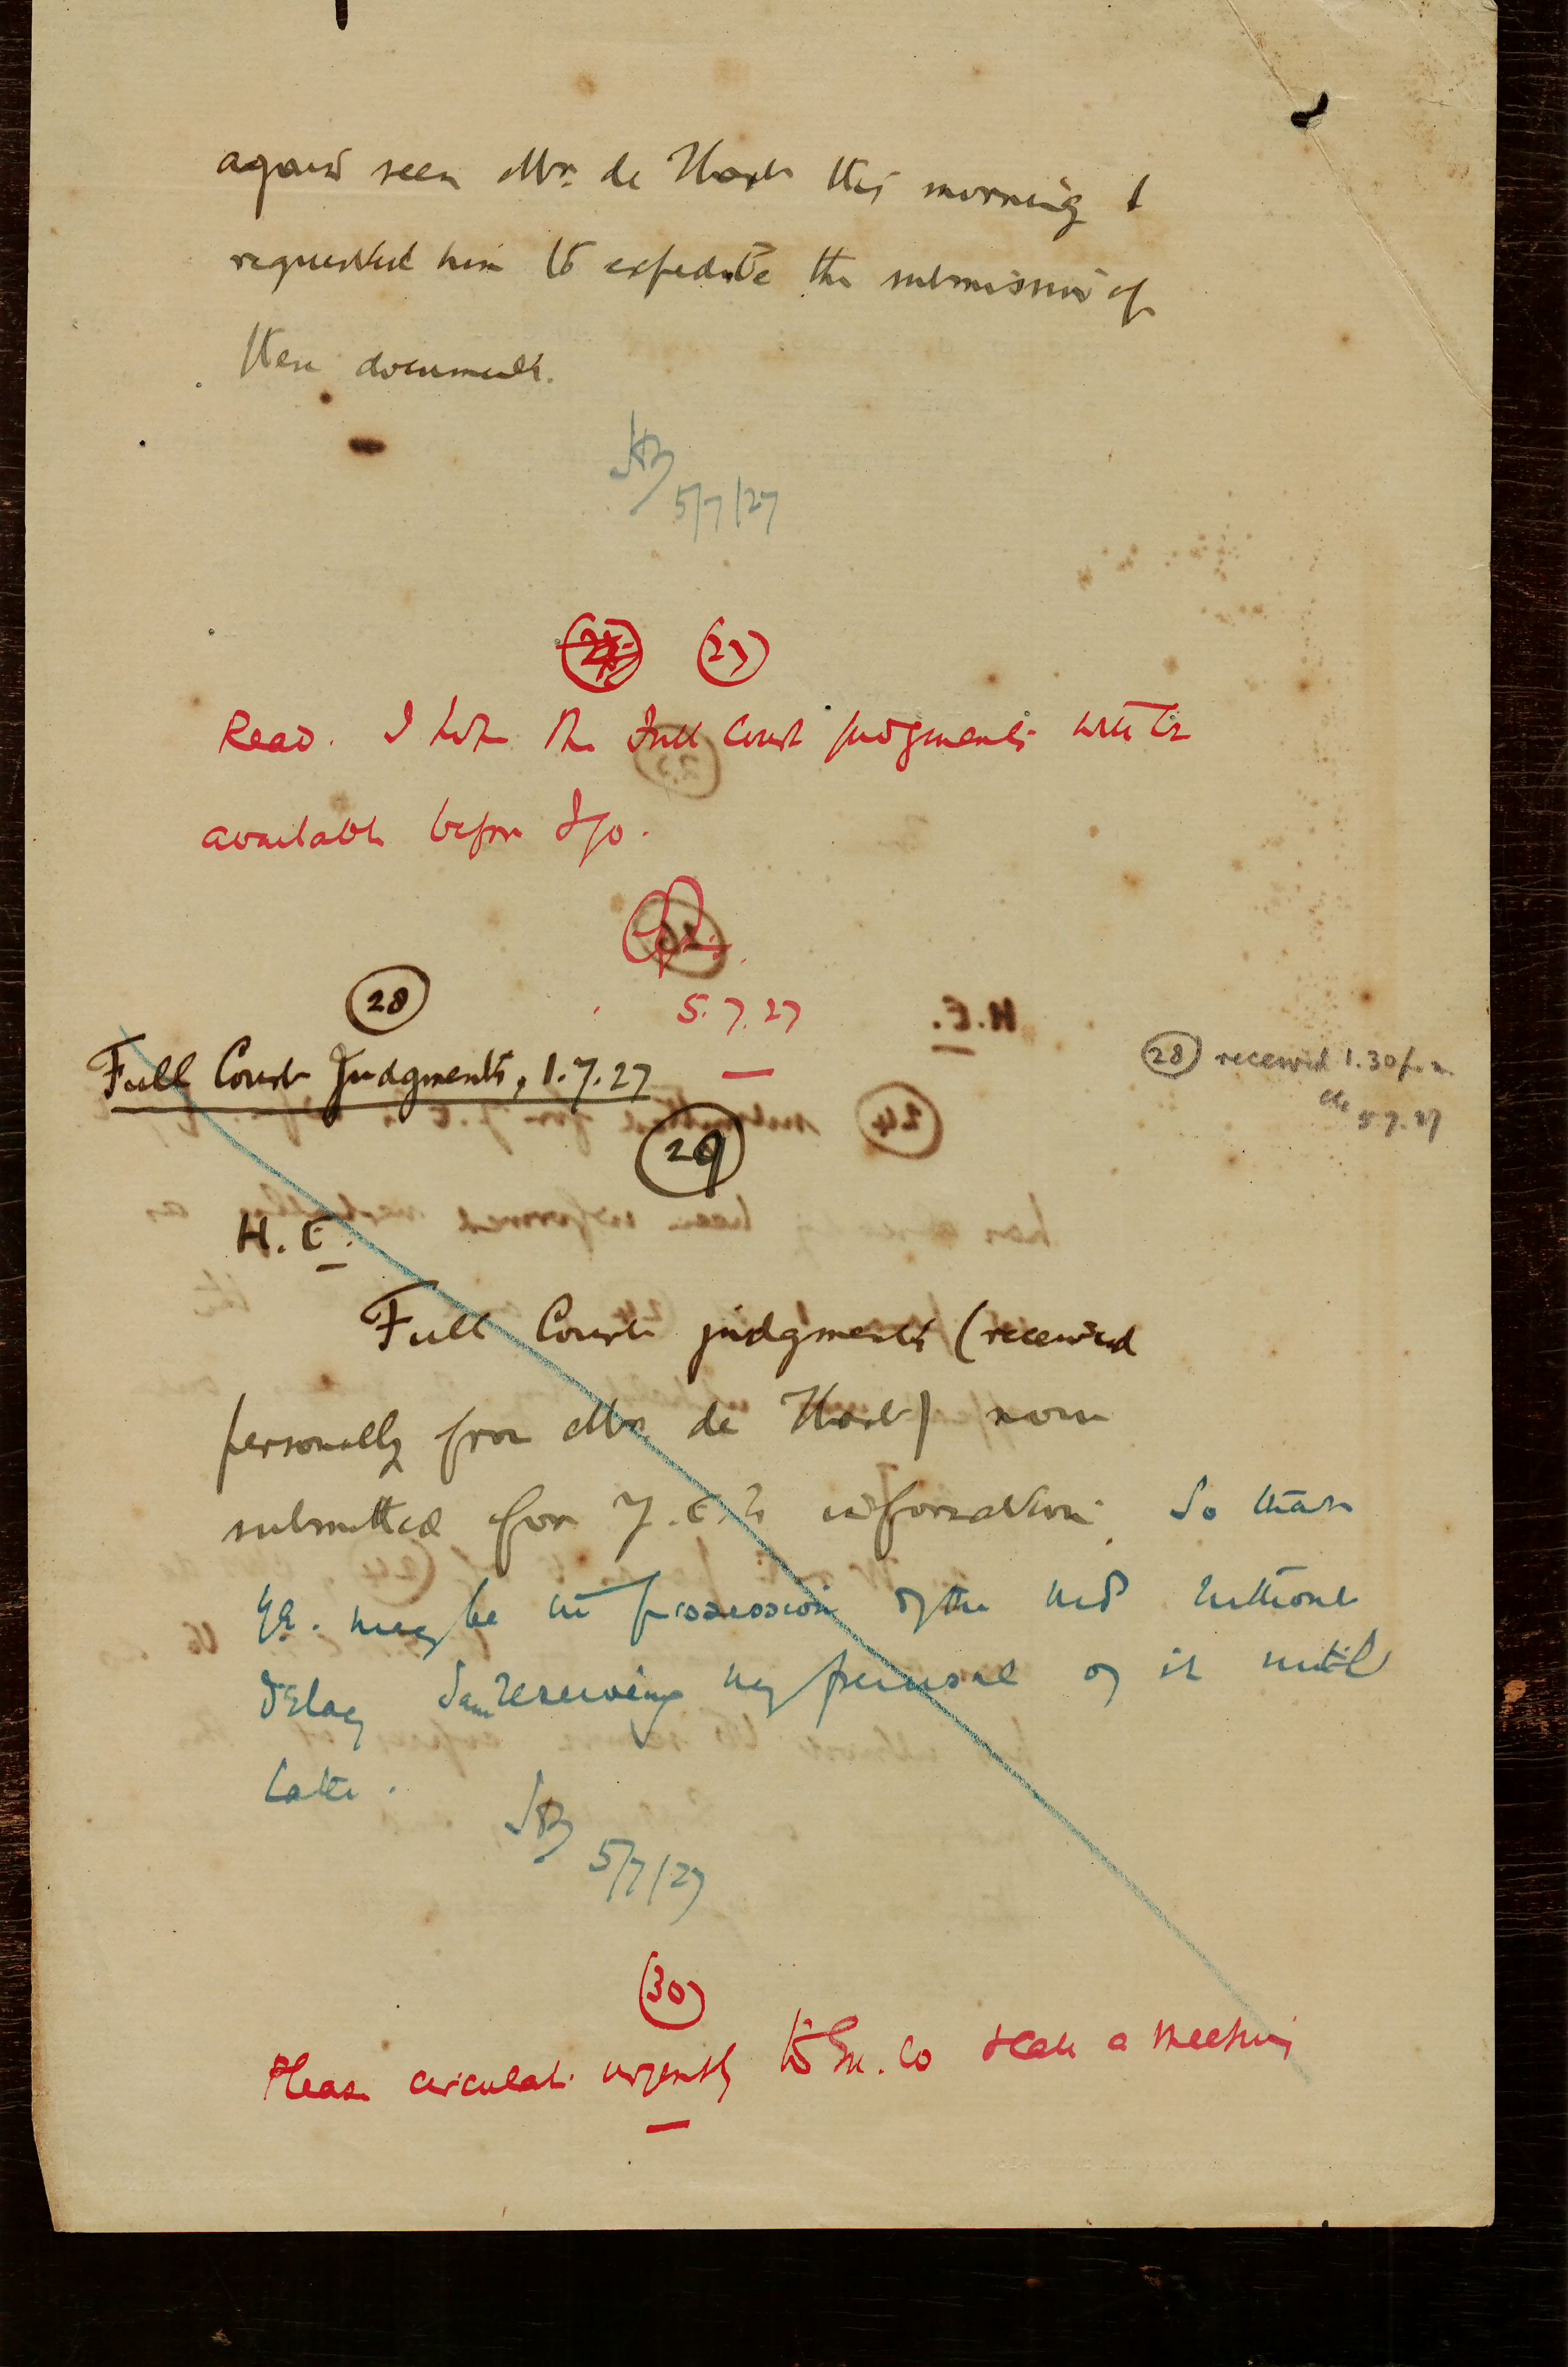 again seen Mr. de Hart this morning &
requested him to expedite the submission of
these documents.
5/7/27
(27)
Read. I hope the Full Court judgments will be
available before I go.
5.7.27
(28)
Full Court Judgments, 1.7.27
(28) received 1.30 p.m.
5.7.27
(29)
H.E.
Full Court judgments (received
personally from Mr. de Hart) now
submitted for Y.E.'s information. So that
Y.E. may be in possession of the without
delay I am reserving my perusal of it until
later.
5/7/27
(30)
Please circulate urgently to Ex. Co a meeting